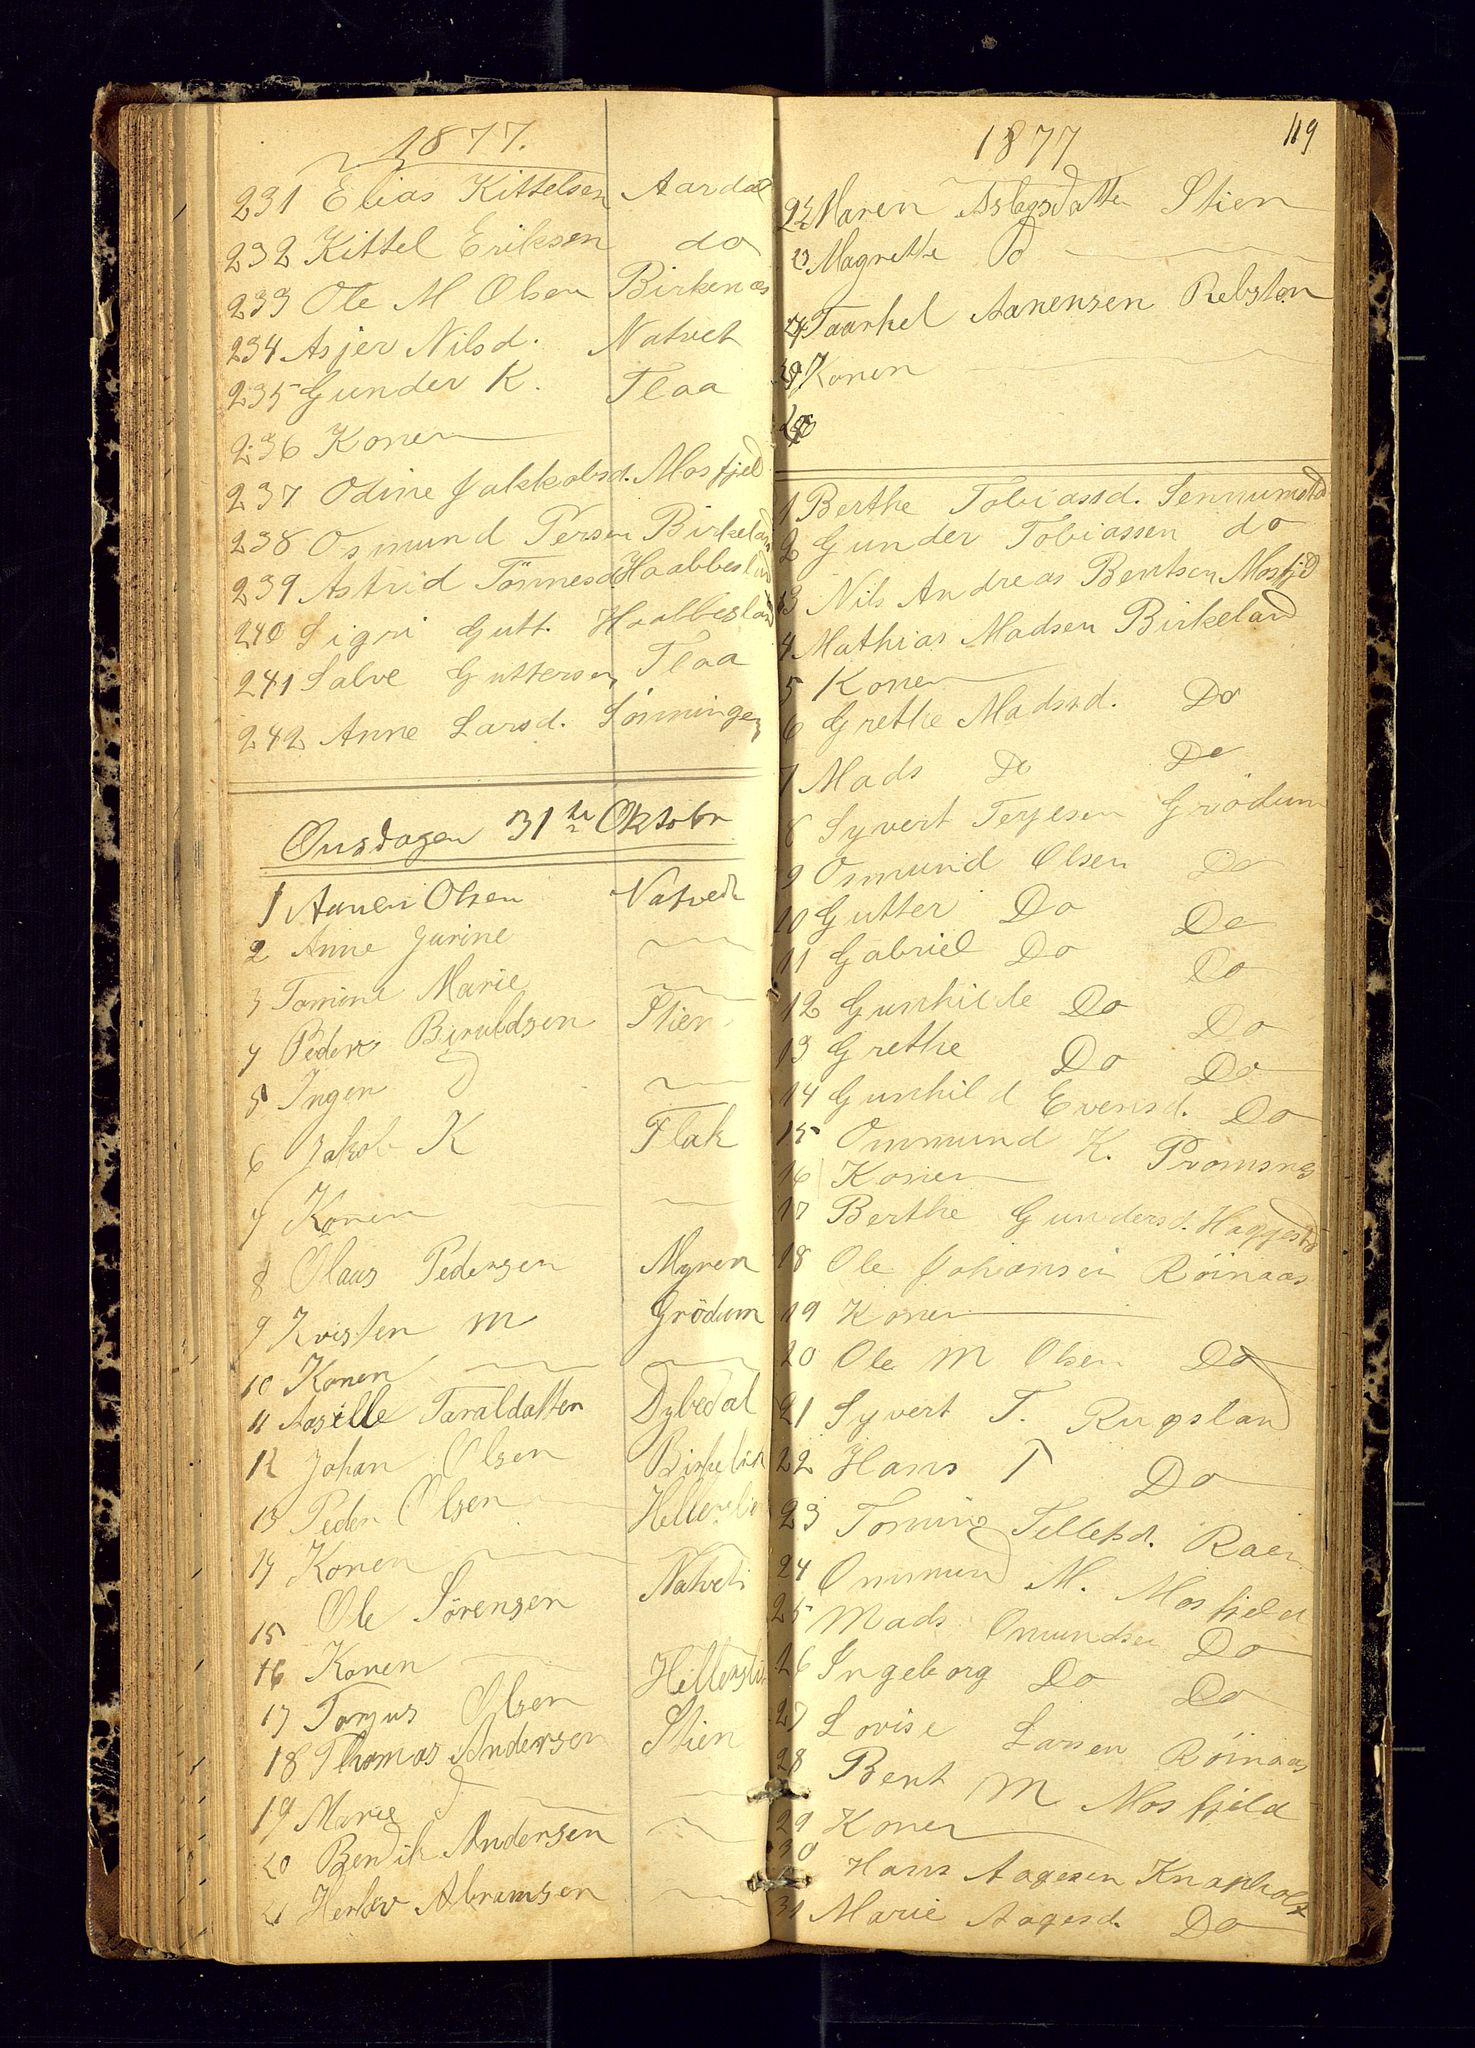 1877.
231 Elias Kittelsen Aardal
232 Kittel Eriksen do
233 Ole M Olsen Birkenæs
234 Asjer Nilsd. Natvet
235 Gunder K. Flaa
236 Konen
237 Odine Jakkobsd. Mosfjeld
238 Osmund Persen Birkeland
239 Astrid Tönnesd Haabbesland
240 Sigri Gutt. Haabbesland
241 Salve Guttersen Flaa
242 Anne Larsd. Sönningen
Onsdagen 31te Oktobr
1 Aanen Olsen Natvedt
2 Anne Jurine
3 Tomine Marie
4 Peder Biruldsen Stien
5 Ingen D
6 Jakob K Flak
7 Konen
8 Olaus Pedersen Myren
9 Kristen M Grödum
10 Konen
11 Aasille Taraldatten Dybedal
12 Johan Olsen
13 Peder Olsen Hellerslien
14 Konen
15 Ole Sörensen Natvet
16 Konen
17 Tarjus Olsen Hellerslien
18 Thomas Andersen Stien
19 Marie D
20 Bendik Andersen
21 Herlov Abramsen
1877
119
22 Maren Aslagsdatter Stien
23 Magrethe D
24 Taarkel Aanensen Rebsten
Konen
1 Berthe Tobiassd. Sennumstad
2 Gunder Tobiassen do
3 Nils Andreas Bentsen Mosfjd
4 Mathias Madsen Birkeland
5 Konen
6 Grethe Madssd. Do
7 Mads Do Do
8 Syvert Terjesen Grödum
9 Osmund Olsen Do
10 Gutter Do Do
11 Gabriel Do Do
12 Gunhilde Do Do
13 Grethe Do Do
14 Gunhild Evensd. Do
15 Ommund K. Promsnes
16 Konen
17 Berthe Gundersd. Haggestd
18 Ole Johansen Röinaas
19 Konen
20 Ole M Olsen Do
21 Syvert T. Rugsland
22 Hans T Do
23 Tomine Tellefsd. Raen
24 Ommund M. Mosfjeld
25 Mads Omundsen Do
26 Ingeborg Do Do
27 Lovise Larsen Röinaas
28 Bent M Mosfjeld
29 Konen
30 Hans Aagesen Knapholt
31 Marie Aagesd. Do